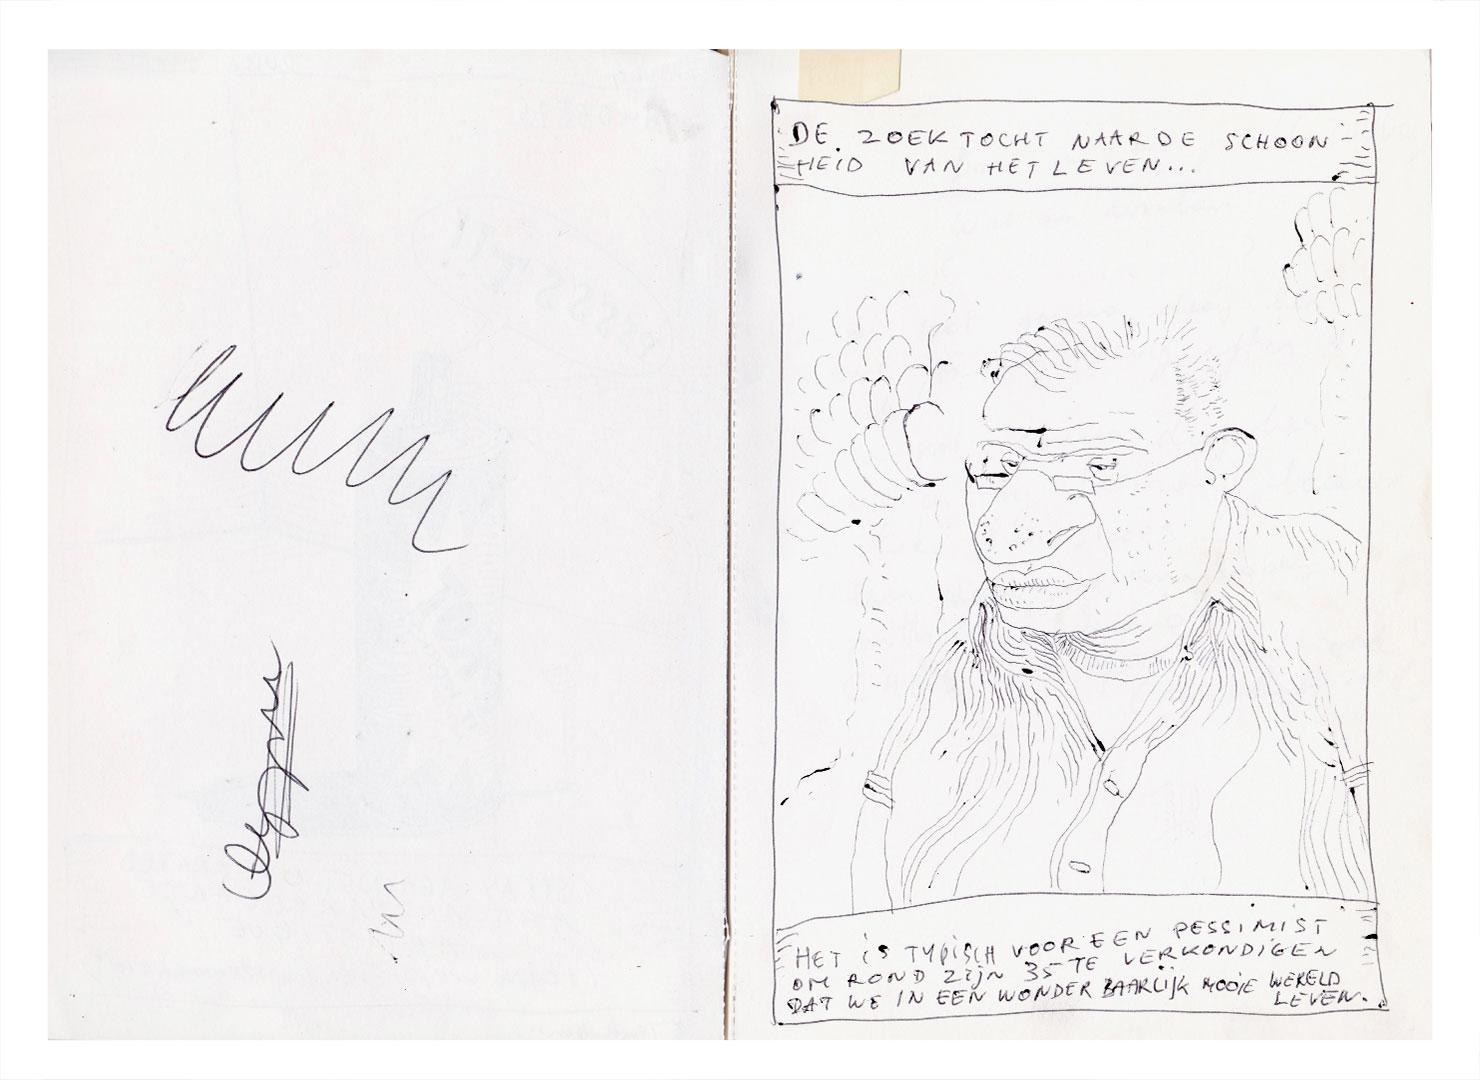 DE ZOEKTOCHT NAAR DE SCHOON-
HEID VAN HET LEVEN...
HET IS TYPISCH VOOR EEN PESSIMIST
OM ROND ZIJN 35 TE VERKONDIGEN
DAT WE IN EEN WONDERBAARLIJK MOOIE WERELD
LEVEN.